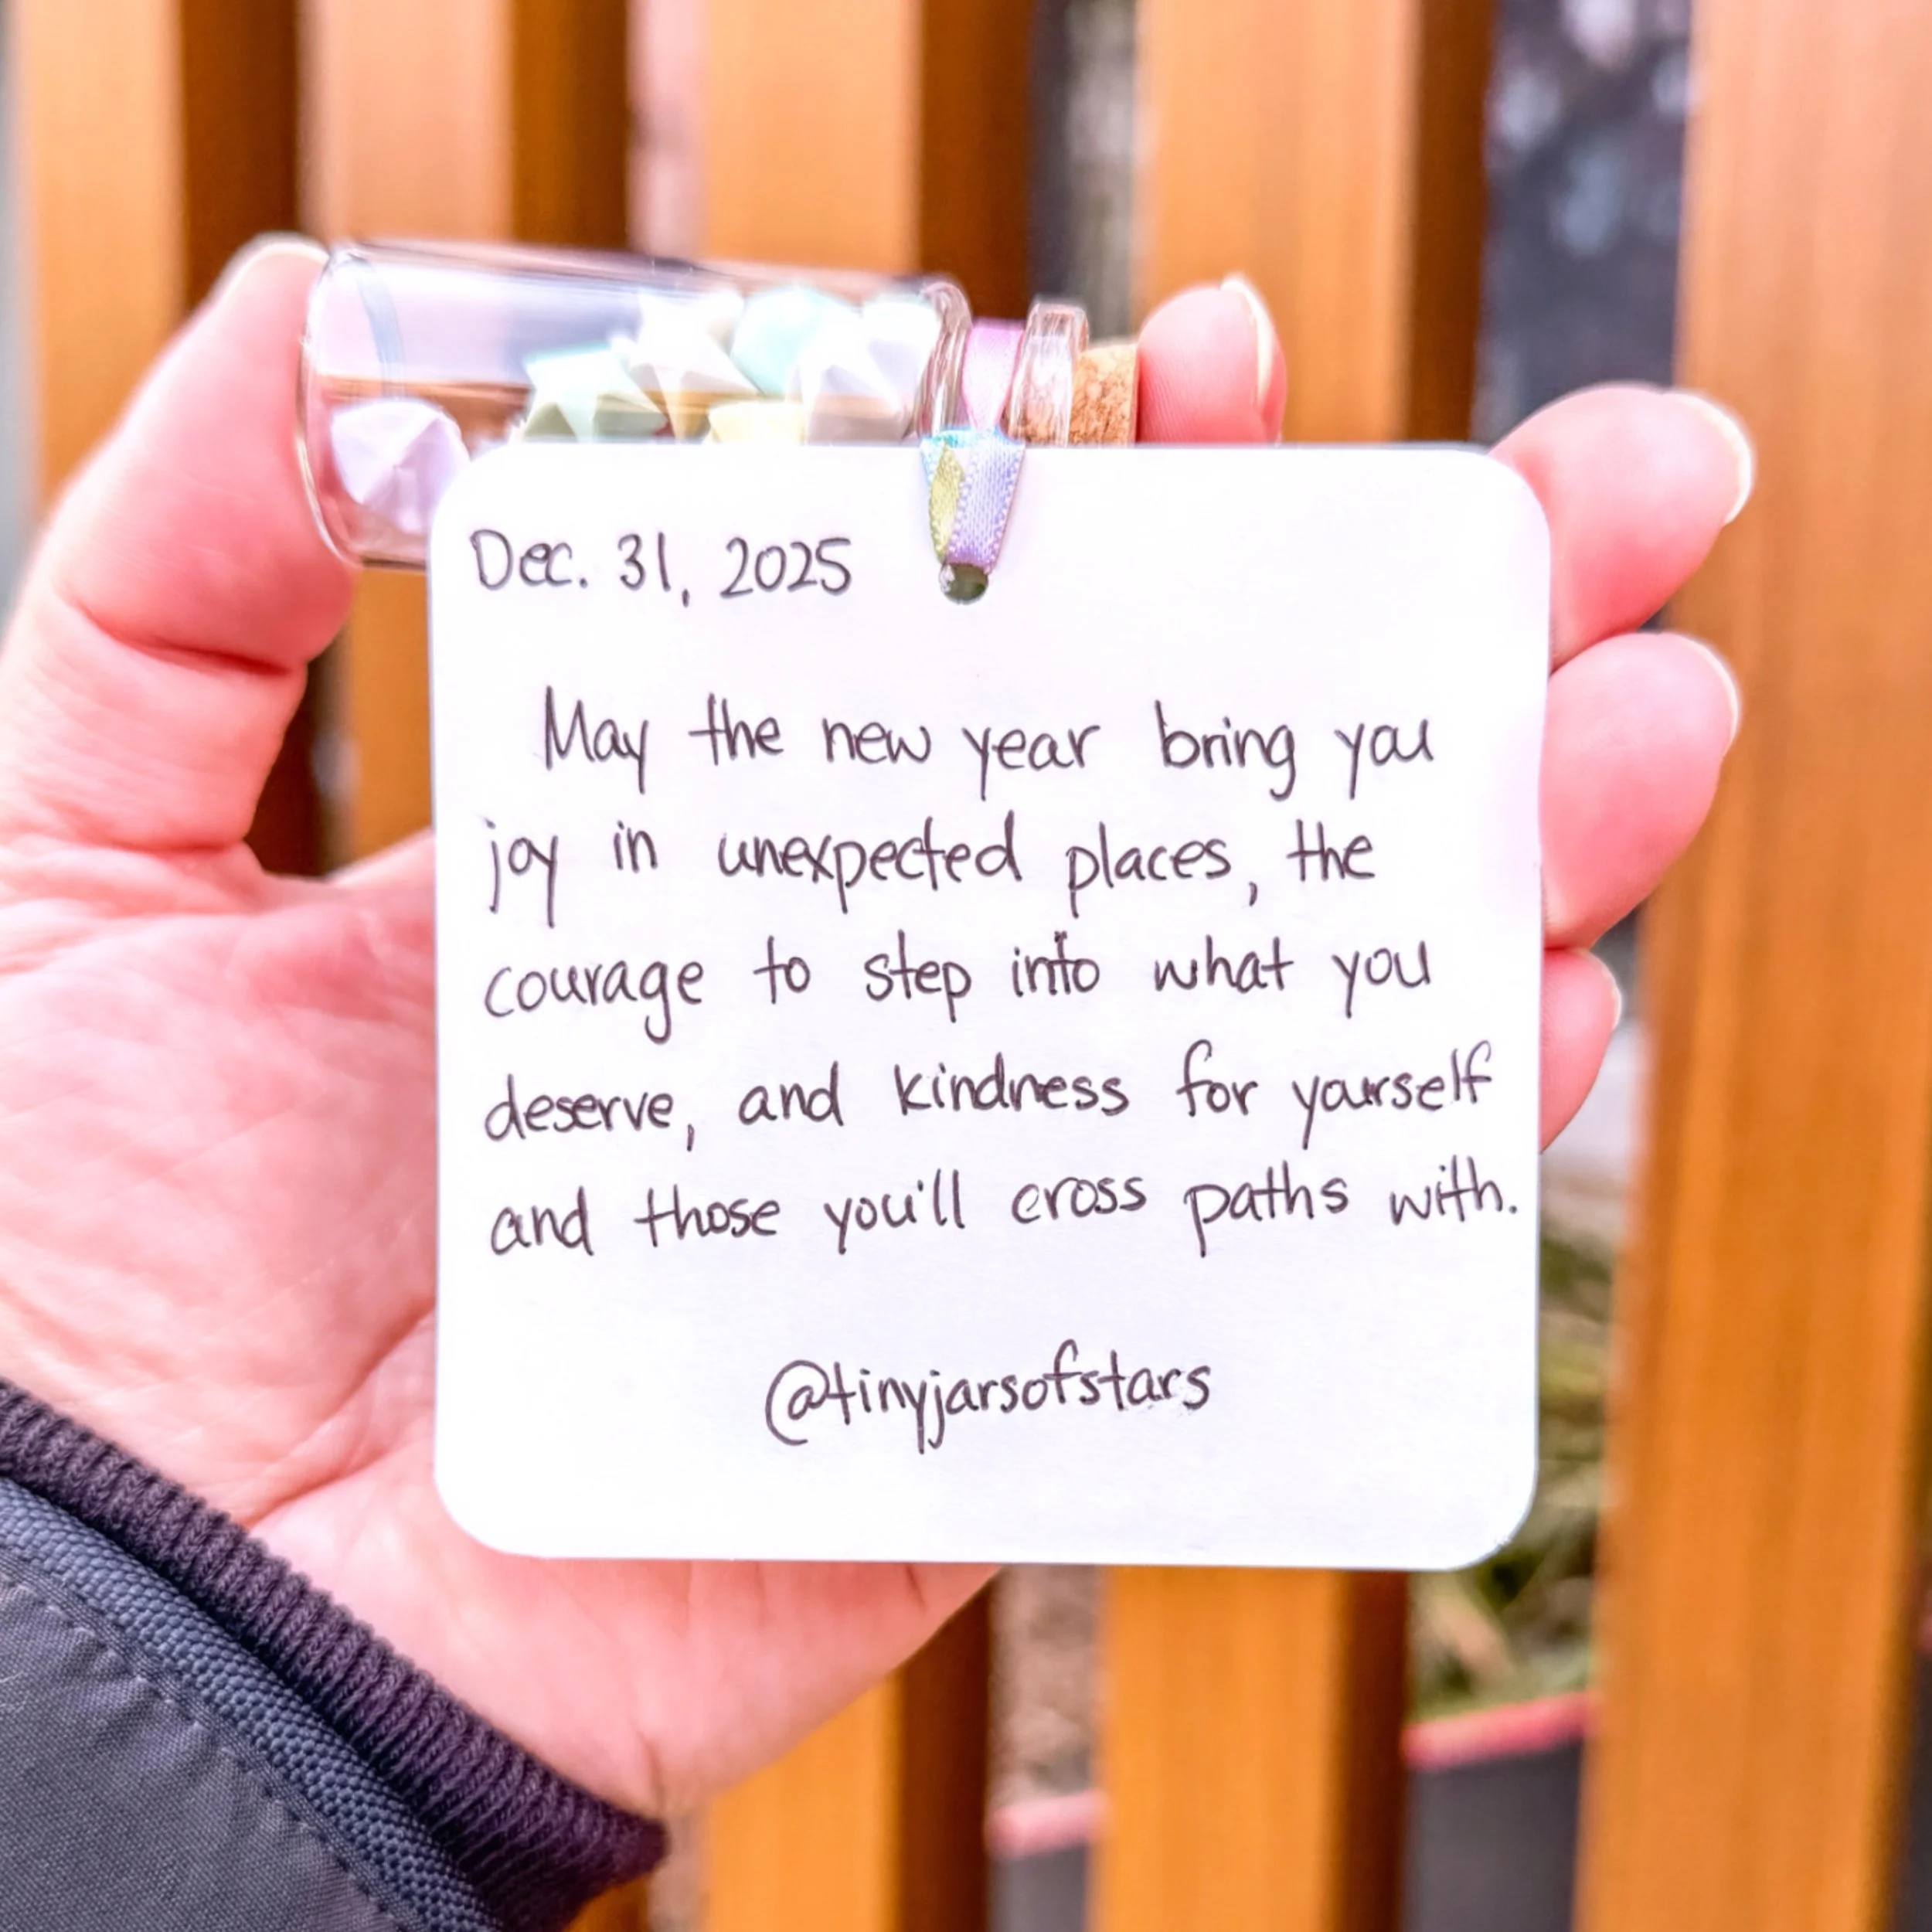 Dec. 31, 2025
May the new year bring you
joy in unexpected places, the
courage to step into what you
deserve, and kindness for yourself
and those you'll cross paths with.
@tinyjarsofstars